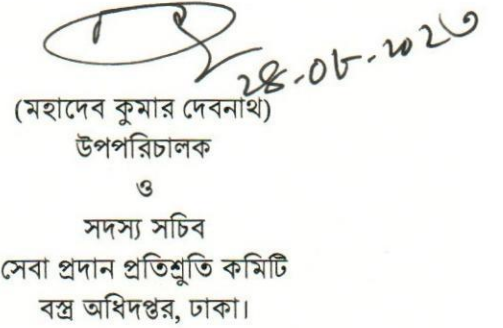 ২৪-০৮-২০২৩
(মহাদেব কুমার দেবনাথ)
উপপরিচালক
ও
সদস্য সচিব
সেবা প্রদান প্রতিশ্রুতি কমিটি
বস্ত্র অধিদপ্তর, ঢাকা।